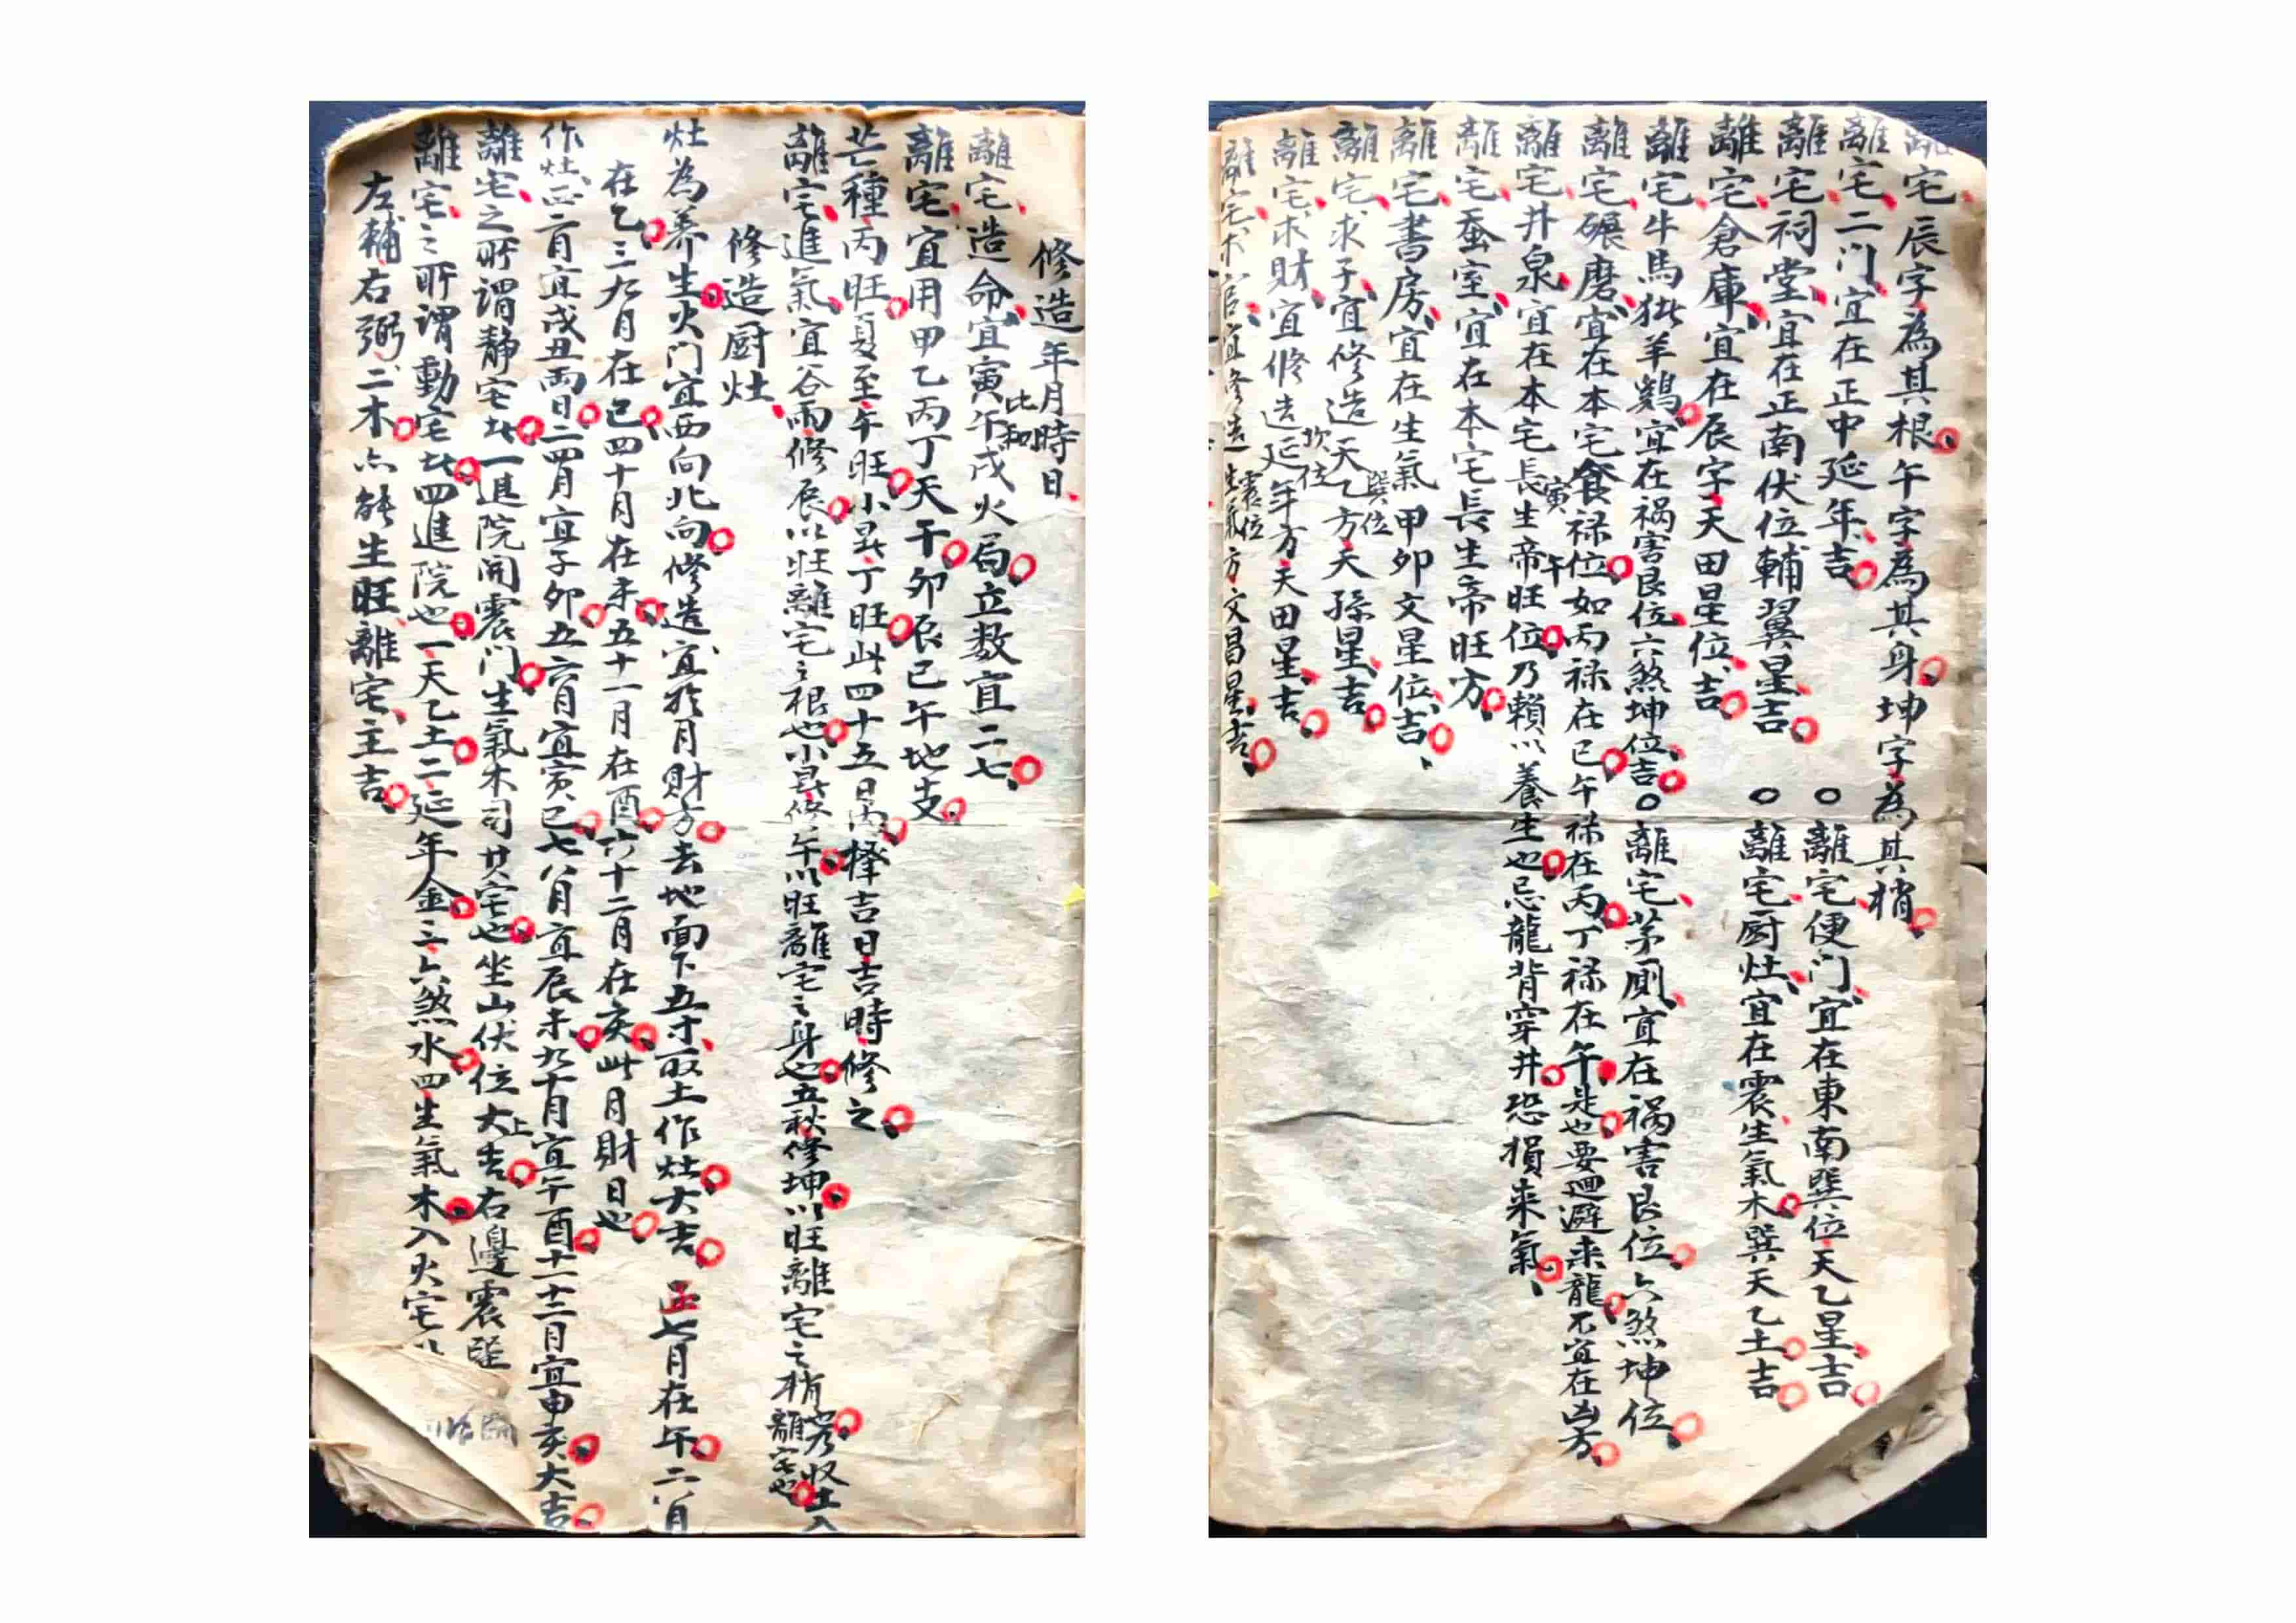 離宅辰字為其根午字為其身坤字為其梢
離宅二门宜在正中延年吉
○離宅便门宜在東南巽位天乙星吉
離宅祠堂宜在正南伏位輔翼星吉
○離宅厨灶宜在震生氣木巽天乙土吉
離宅倉庫宜在辰字天田星位吉
離宅牛馬猪羊鷄宜在祸害艮位六煞坤位吉
○離宅茅厠宜在祸害艮位六煞坤位
離宅碾磨宜在本宅食禄位如丙禄在巳午禄在丙丁禄在午是也要迴避来龍不宜在凶方
離宅井泉宜在本宅長生寅帝旺午位乃賴以養生也忌龍背穿井恐損来氣
離宅蚕室宜在本宅長生帝旺方
離宅書房宜在生氣甲卯文星位吉
離宅求子宜修造天乙巽位方天孫星吉
離宅求財宜修造延年坎位方天田星吉
離宅求官宜修造生氣震位方文昌星吉
修造年月時日
離宅造命宜寅午戌火局立数宜二七
比和
離宅宜用甲乙丙丁天干卯辰巳午地支
芒種丙旺夏至午旺小暑丁旺此四十五日内擇吉日吉時修之
離宅進氣宜谷雨修辰以旺離宅之根也小暑修午以旺離宅之身也立秋修坤以旺離宅之梢
離宅也
修造厨灶
灶為养生火门宜西向北向修造宜於月財方去地面下五寸取土作灶大吉 正七月在午二八月
在乙三九月在巳四十月在未五十一月在酉六十二月在亥此月財日也
作灶正二月宜戌丑两日三四月宜子卯五六月宜寅巳七八月宜辰未九十月宜午酉十一十二月宜申亥大吉
離宅之所謂静宅此一進院開震门生氣木司其宅也坐山伏位大上吉右邊震
離宅之所謂動宅此四進院也一天乙土二延年金三六煞水四生氣木入火宅
左輔右弼二木六能生旺離宅主吉